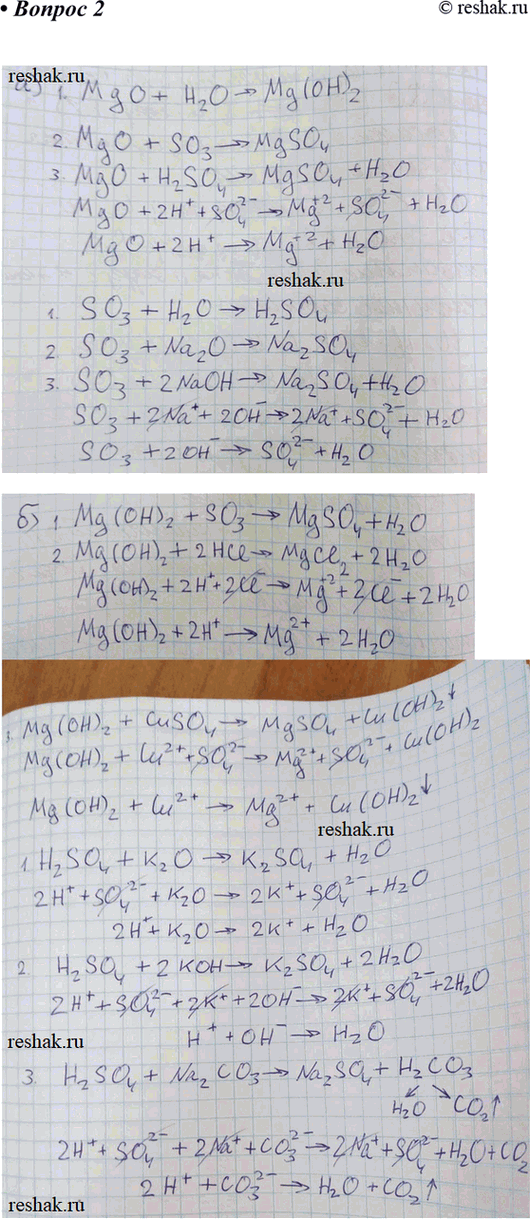 • Вопрос 2
© reshak.ru
reshak.ru
а) 1. MgO + H₂O → Mg(OH)₂
2. MgO + SO₃ → MgSO₄
3. MgO + H₂SO₄ → MgSO₄ + H₂O
MgO + 2H⁺ + SO₄²⁻ → Mg⁺² + SO₄²⁻ + H₂O
MgO + 2H⁺ → Mg⁺² + H₂O
reshak.ru
1. SO₃ + H₂O → H₂SO₄
2. SO₃ + Na₂O → Na₂SO₄
3. SO₃ + 2NaOH → Na₂SO₄ + H₂O
SO₃ + 2Na⁺ + 2OH⁻ → 2Na⁺ + SO₄²⁻ + H₂O
SO₃ + 2OH⁻ → SO₄²⁻ + H₂O
б) 1 Mg(OH)₂ + SO₃ → MgSO₄ + H₂O
2. Mg(OH)₂ + 2HCl → MgCl₂ + 2H₂O
Mg(OH)₂ + 2H⁺ + 2Cl⁻ → Mg⁺² + 2Cl⁻ + 2H₂O
Mg(OH)₂ + 2H⁺ → Mg²⁺ + 2H₂O
Mg(OH)₂ + CuSO₄ → MgSO₄ + Cu(OH)₂↓
Mg(OH)₂ + Cu²⁺ + SO₄²⁻ → Mg²⁺ + SO₄²⁻ + Cu(OH)₂
Mg(OH)₂ + Cu²⁺ → Mg²⁺ + Cu(OH)₂↓
reshak.ru
1 H₂SO₄ + K₂O → K₂SO₄ + H₂O
2H⁺ + SO₄²⁻ + K₂O → 2K⁺ + SO₄²⁻ + H₂O
2H⁺ + K₂O → 2K⁺ + H₂O
2. H₂SO₄ + 2KOH → K₂SO₄ + 2H₂O
2H⁺ + SO₄²⁻ + 2K⁺ + 2OH⁻ → 2K⁺ + SO₄²⁻ + 2H₂O
reshak.ru
H⁺ + OH⁻ → H₂O
3. H₂SO₄ + Na₂CO₃ → Na₂SO₄ + H₂CO₃
H₂O CO₂↑
2H⁺ + SO₄²⁻ + 2Na⁺ + CO₃²⁻ → 2Na⁺ + SO₄²⁻ + H₂O + CO₂
2H⁺ + CO₃²⁻ → H₂O + CO₂↑
reshak.ru